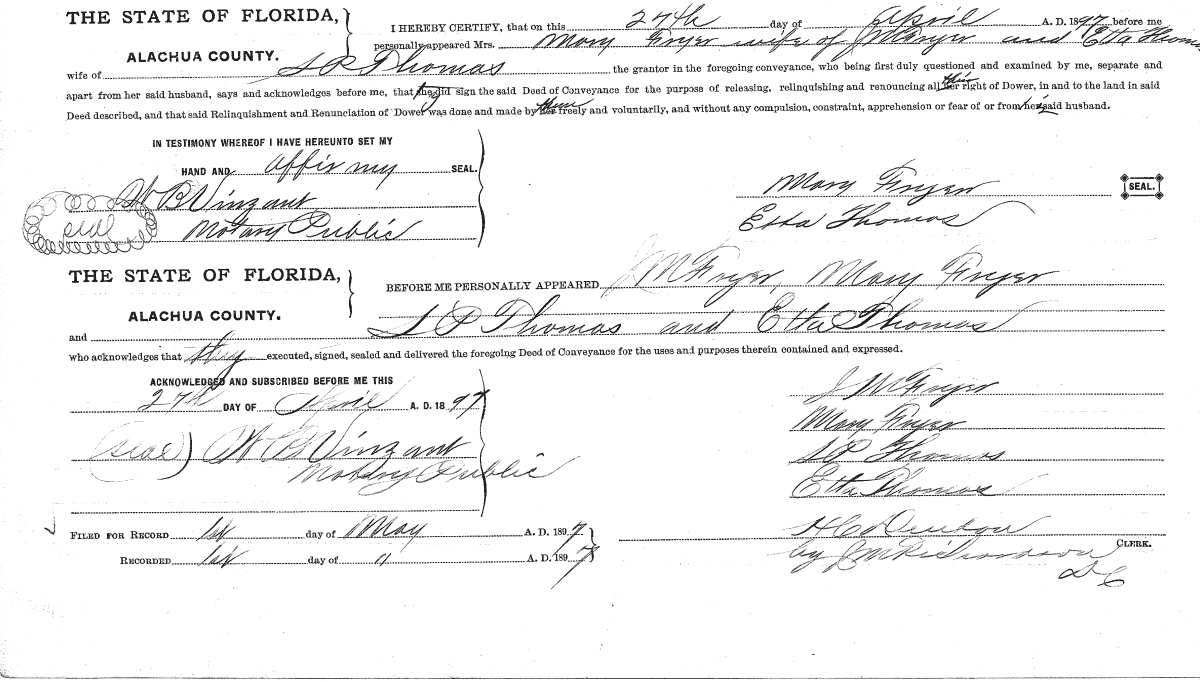 THE STATE OF FLORIDA,
ALACHUA COUNTY.
I HEREBY CERTIFY, that on this 27th day of April A. D. 1897 before me
personally appeared Mrs. Mary Fryer wife of J M Fryer and Etta Thomas
wife of S P Thomas the grantor in the foregoing conveyance, who being first duly questioned and examined by me, separate and
apart from her said husband, says and acknowledges before me, that they did sign the said Deed of Conveyance for the purpose of releasing, relinquishing and renouncing all their right of Dower, in and to the land in said
Deed described, and that said Relinquishment and Renunciation of Dower was done and made by them freely and voluntarily, and without any compulsion, constraint, apprehension or fear of or from her said husband.
IN TESTIMONY WHEREOF I HAVE HEREUNTO SET MY
HAND AND affix my SEAL.
W B Vinzant
seal Notary Public
Mary Fryer SEAL.
Etta Thomas
THE STATE OF FLORIDA,
ALACHUA COUNTY.
BEFORE ME PERSONALLY APPEARED J M Fryer, Mary Fryer
and S P Thomas and Etta Thomas
who acknowledges that they executed, signed, sealed and delivered the foregoing Deed of Conveyance for the uses and purposes therein contained and expressed.
ACKNOWLEDGED AND SUBSCRIBED BEFORE ME THIS
27th DAY OF April A. D. 1897
(seal) W B Vinzant
Notary Public
J M Fryer
Mary Fryer
S P Thomas
Etta Thomas
FILED FOR RECORD 1st day of May A. D. 1897
RECORDED 1st day of " A. D. 1897
H C Denton
CLERK.
by J M Richardson
D C